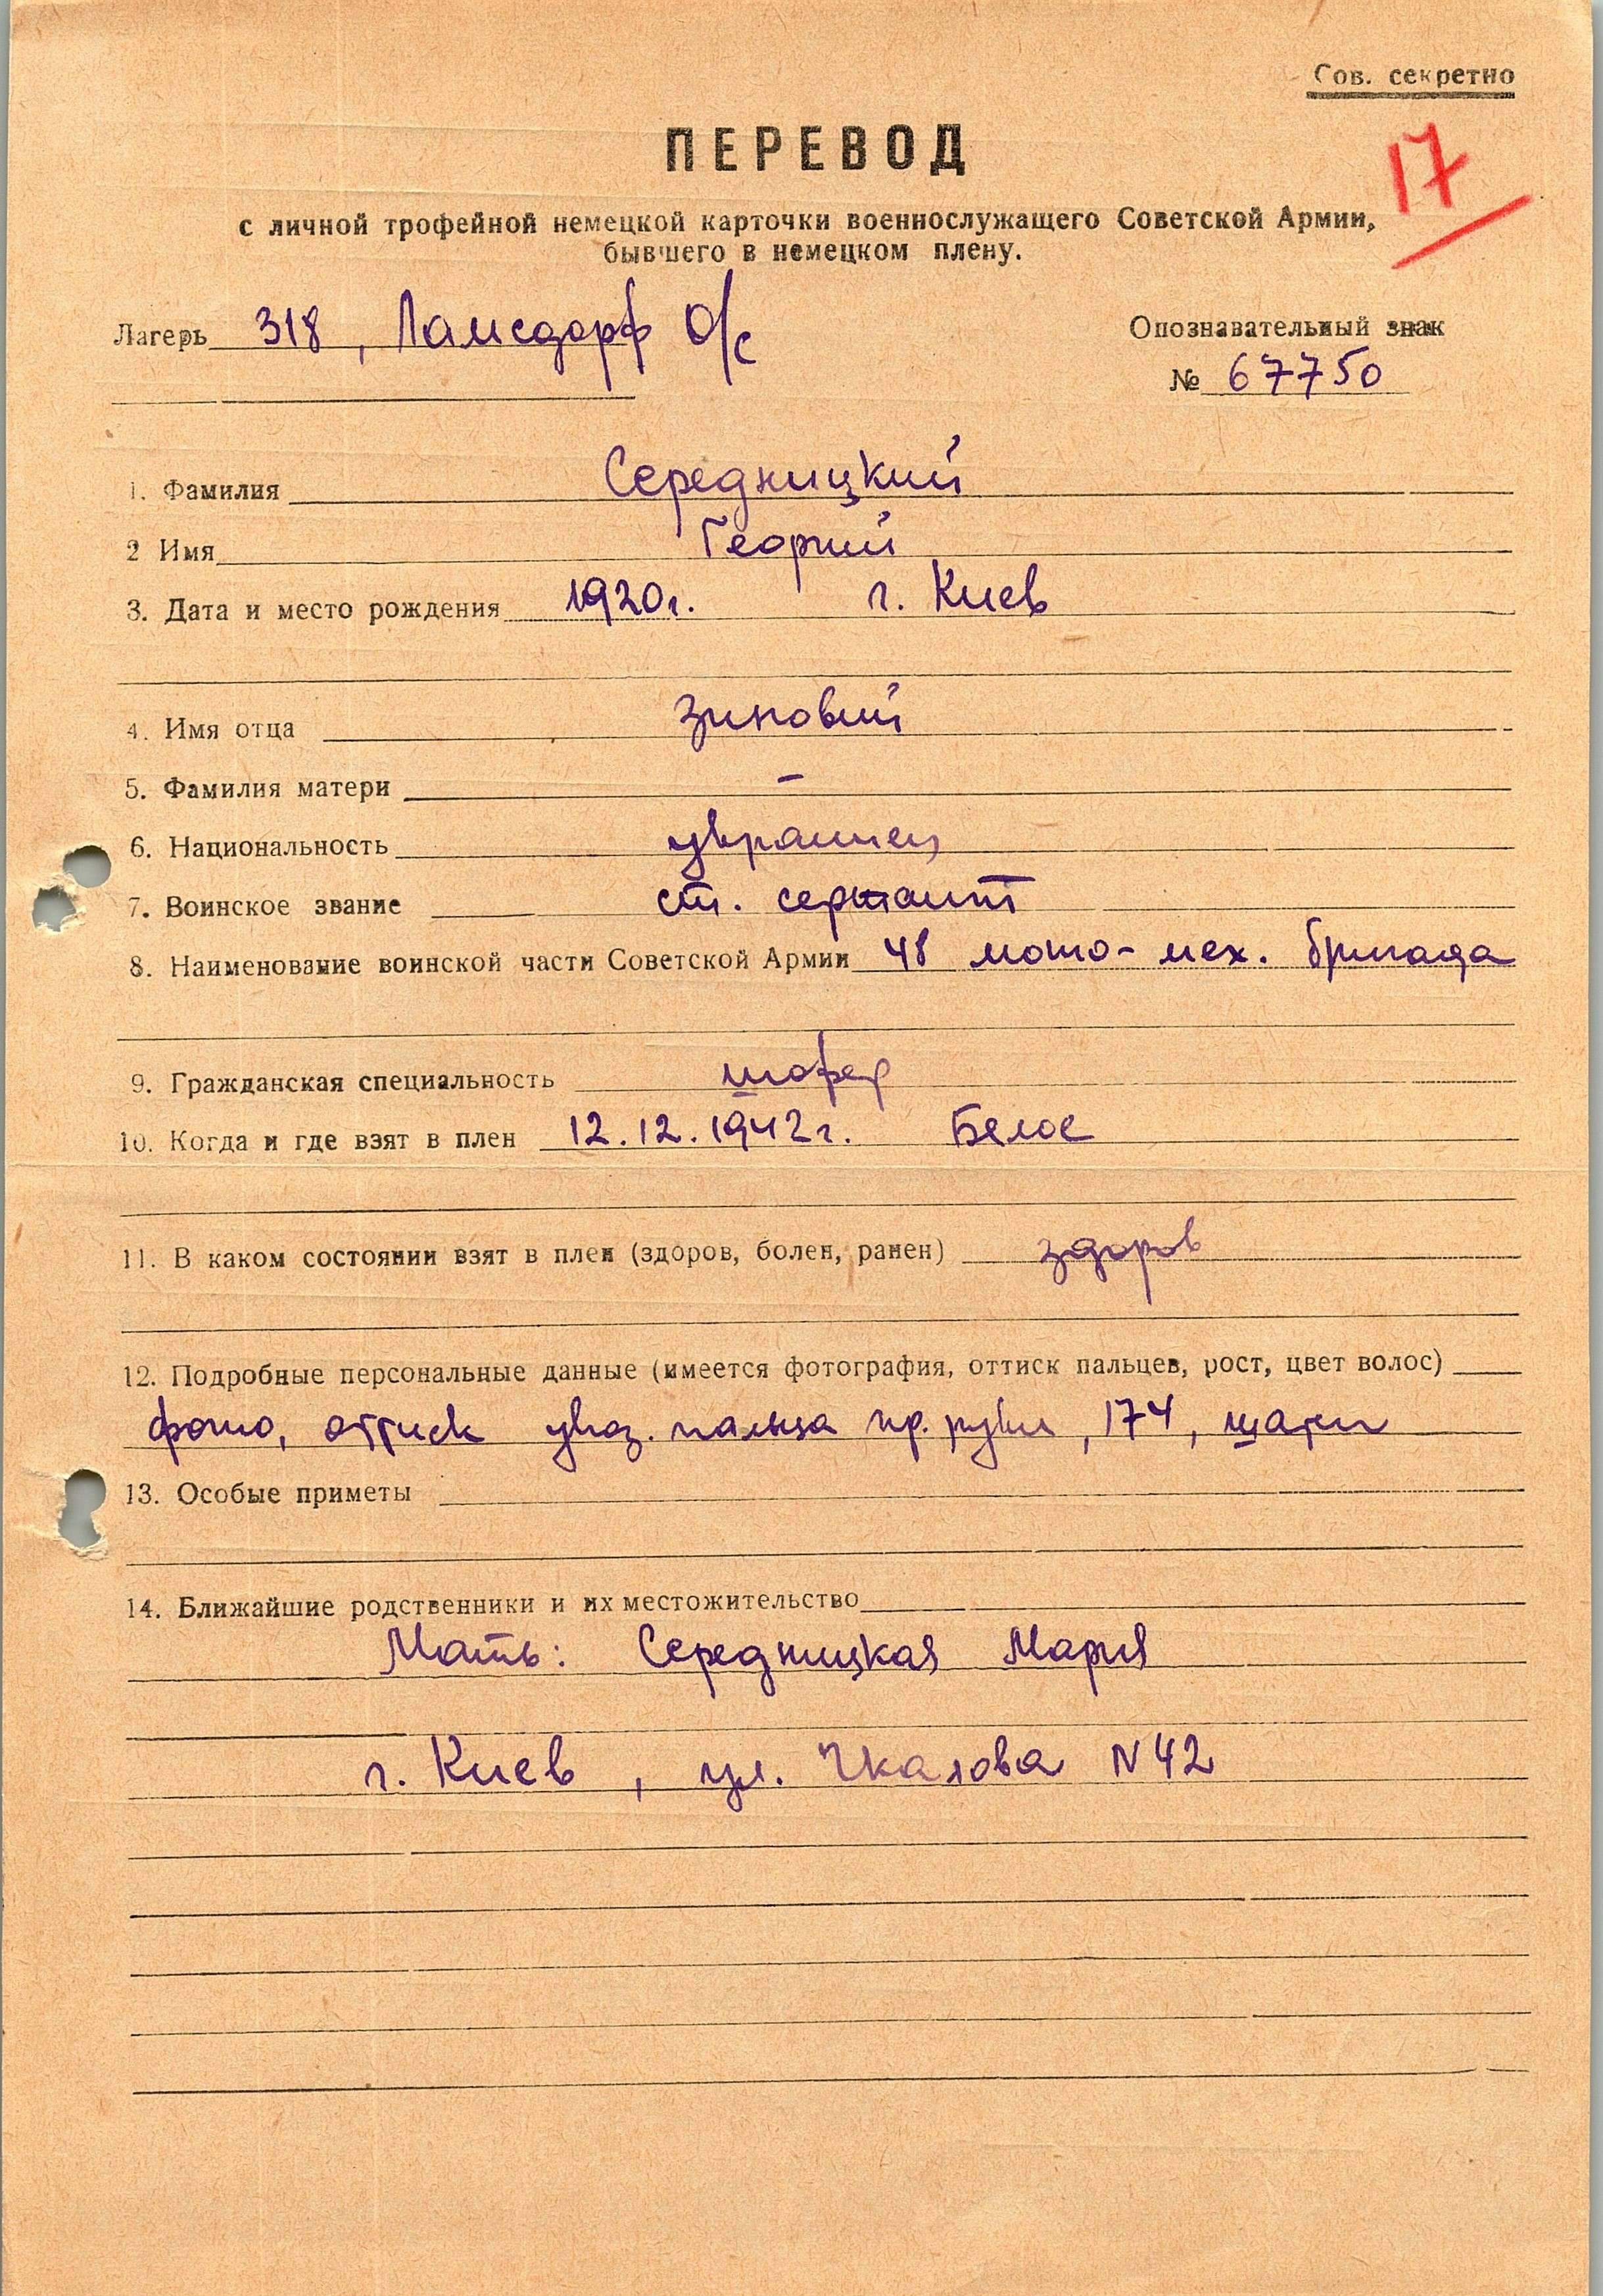 Сов. секретно
ПЕРЕВОД
17
с личной трофейной немецкой карточки военнослужащего Советской Армии,
бывшего в немецком плену.
Лагерь 318, Ламсдорф О/с
Опознавательный знак
№ 67750
1. Фамилия Середницкий
2 Имя Георгий
3. Дата и место рождения 1920г. г. Киев
4. Имя отца Зиновий
5. Фамилия матери –
6. Национальность украинец
7. Воинское звание ст. сержант
8. Наименование воинской части Советской Армии 48 мото-мех. бригада
9. Гражданская специальность шофер
10. Когда и где взят в плен 12.12.1942г. Белое
11. В каком состоянии взят в плен (здоров, болен, ранен) здоров
12. Подробные персональные данные (имеется фотография, оттиск пальцев, рост, цвет волос)
фото, оттиск указ. пальца пр. руки, 174,
13. Особые приметы
14. Ближайшие родственники и их местожительство
Мать: Середницкая Мария
г. Киев, ул. Чкалова N 42